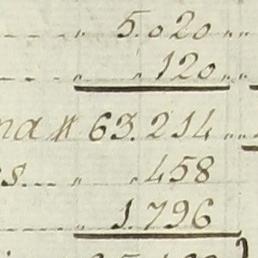 5.020
120
na # 63.214
s... 458
1.796